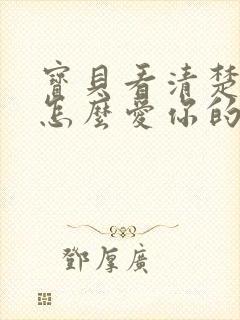 寶貝看清楚
怎麼愛你的
鄧厚廣